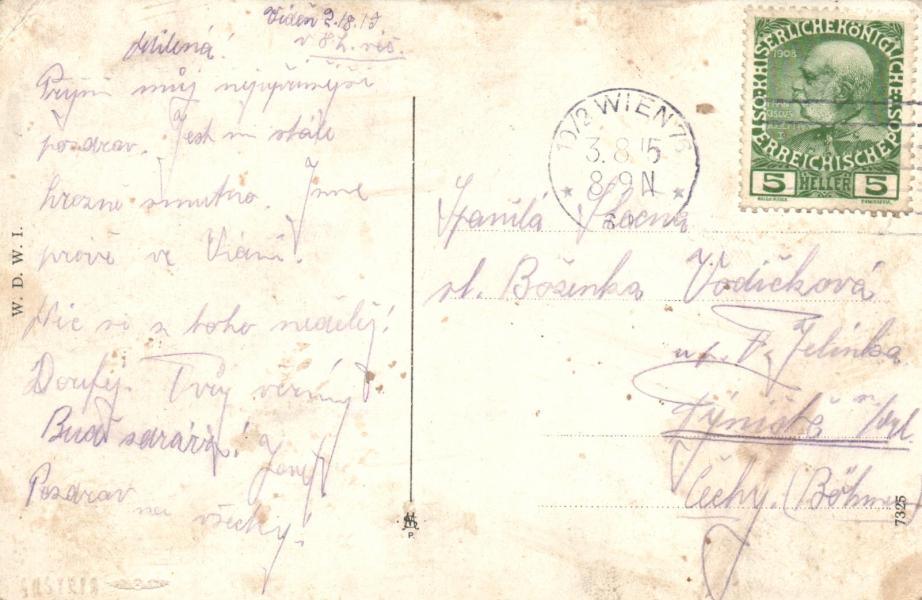 Vídeň 2./8. 15
v 8 h. več.
Milená!
Přijmi můj nejupřímější
pozdrav. Jest mi stále
hrozně smutno. Jsme
právě ve Vídni.
Nic si z toho nedělej!
Doufej. Tvůj věrný
Buď zdráva! Josef
Pozdrav
na všecky!
W. D. W. I.
10/2 WIEN 76
3.8.15
8-9N
KAISERLICHEKÖNIGLICHE
ÖSTERREICHISCHEPOST
1908
5 HELLER 5
Slečna
sl. Boženka Vodičková
Jelínka
Týniště n/Orl
Čechy. (Böhmen
7325
P
AUSTRIA